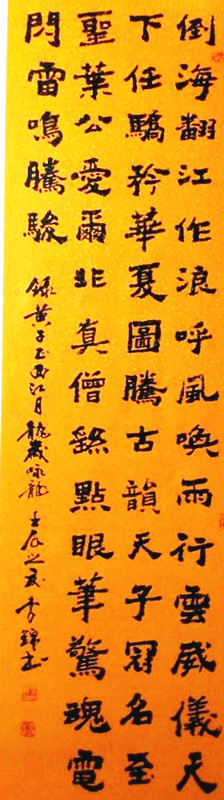 倒海翻江作浪呼風喚雨行雲威儀天
下任驕矜華夏圖騰古韻天子冠名至
聖葉公愛爾非真僧繇點眼筆驚魂電
閃雷鳴騰駿
錄黃子玉西江月龍歲咏龍壬辰之夏李錦書